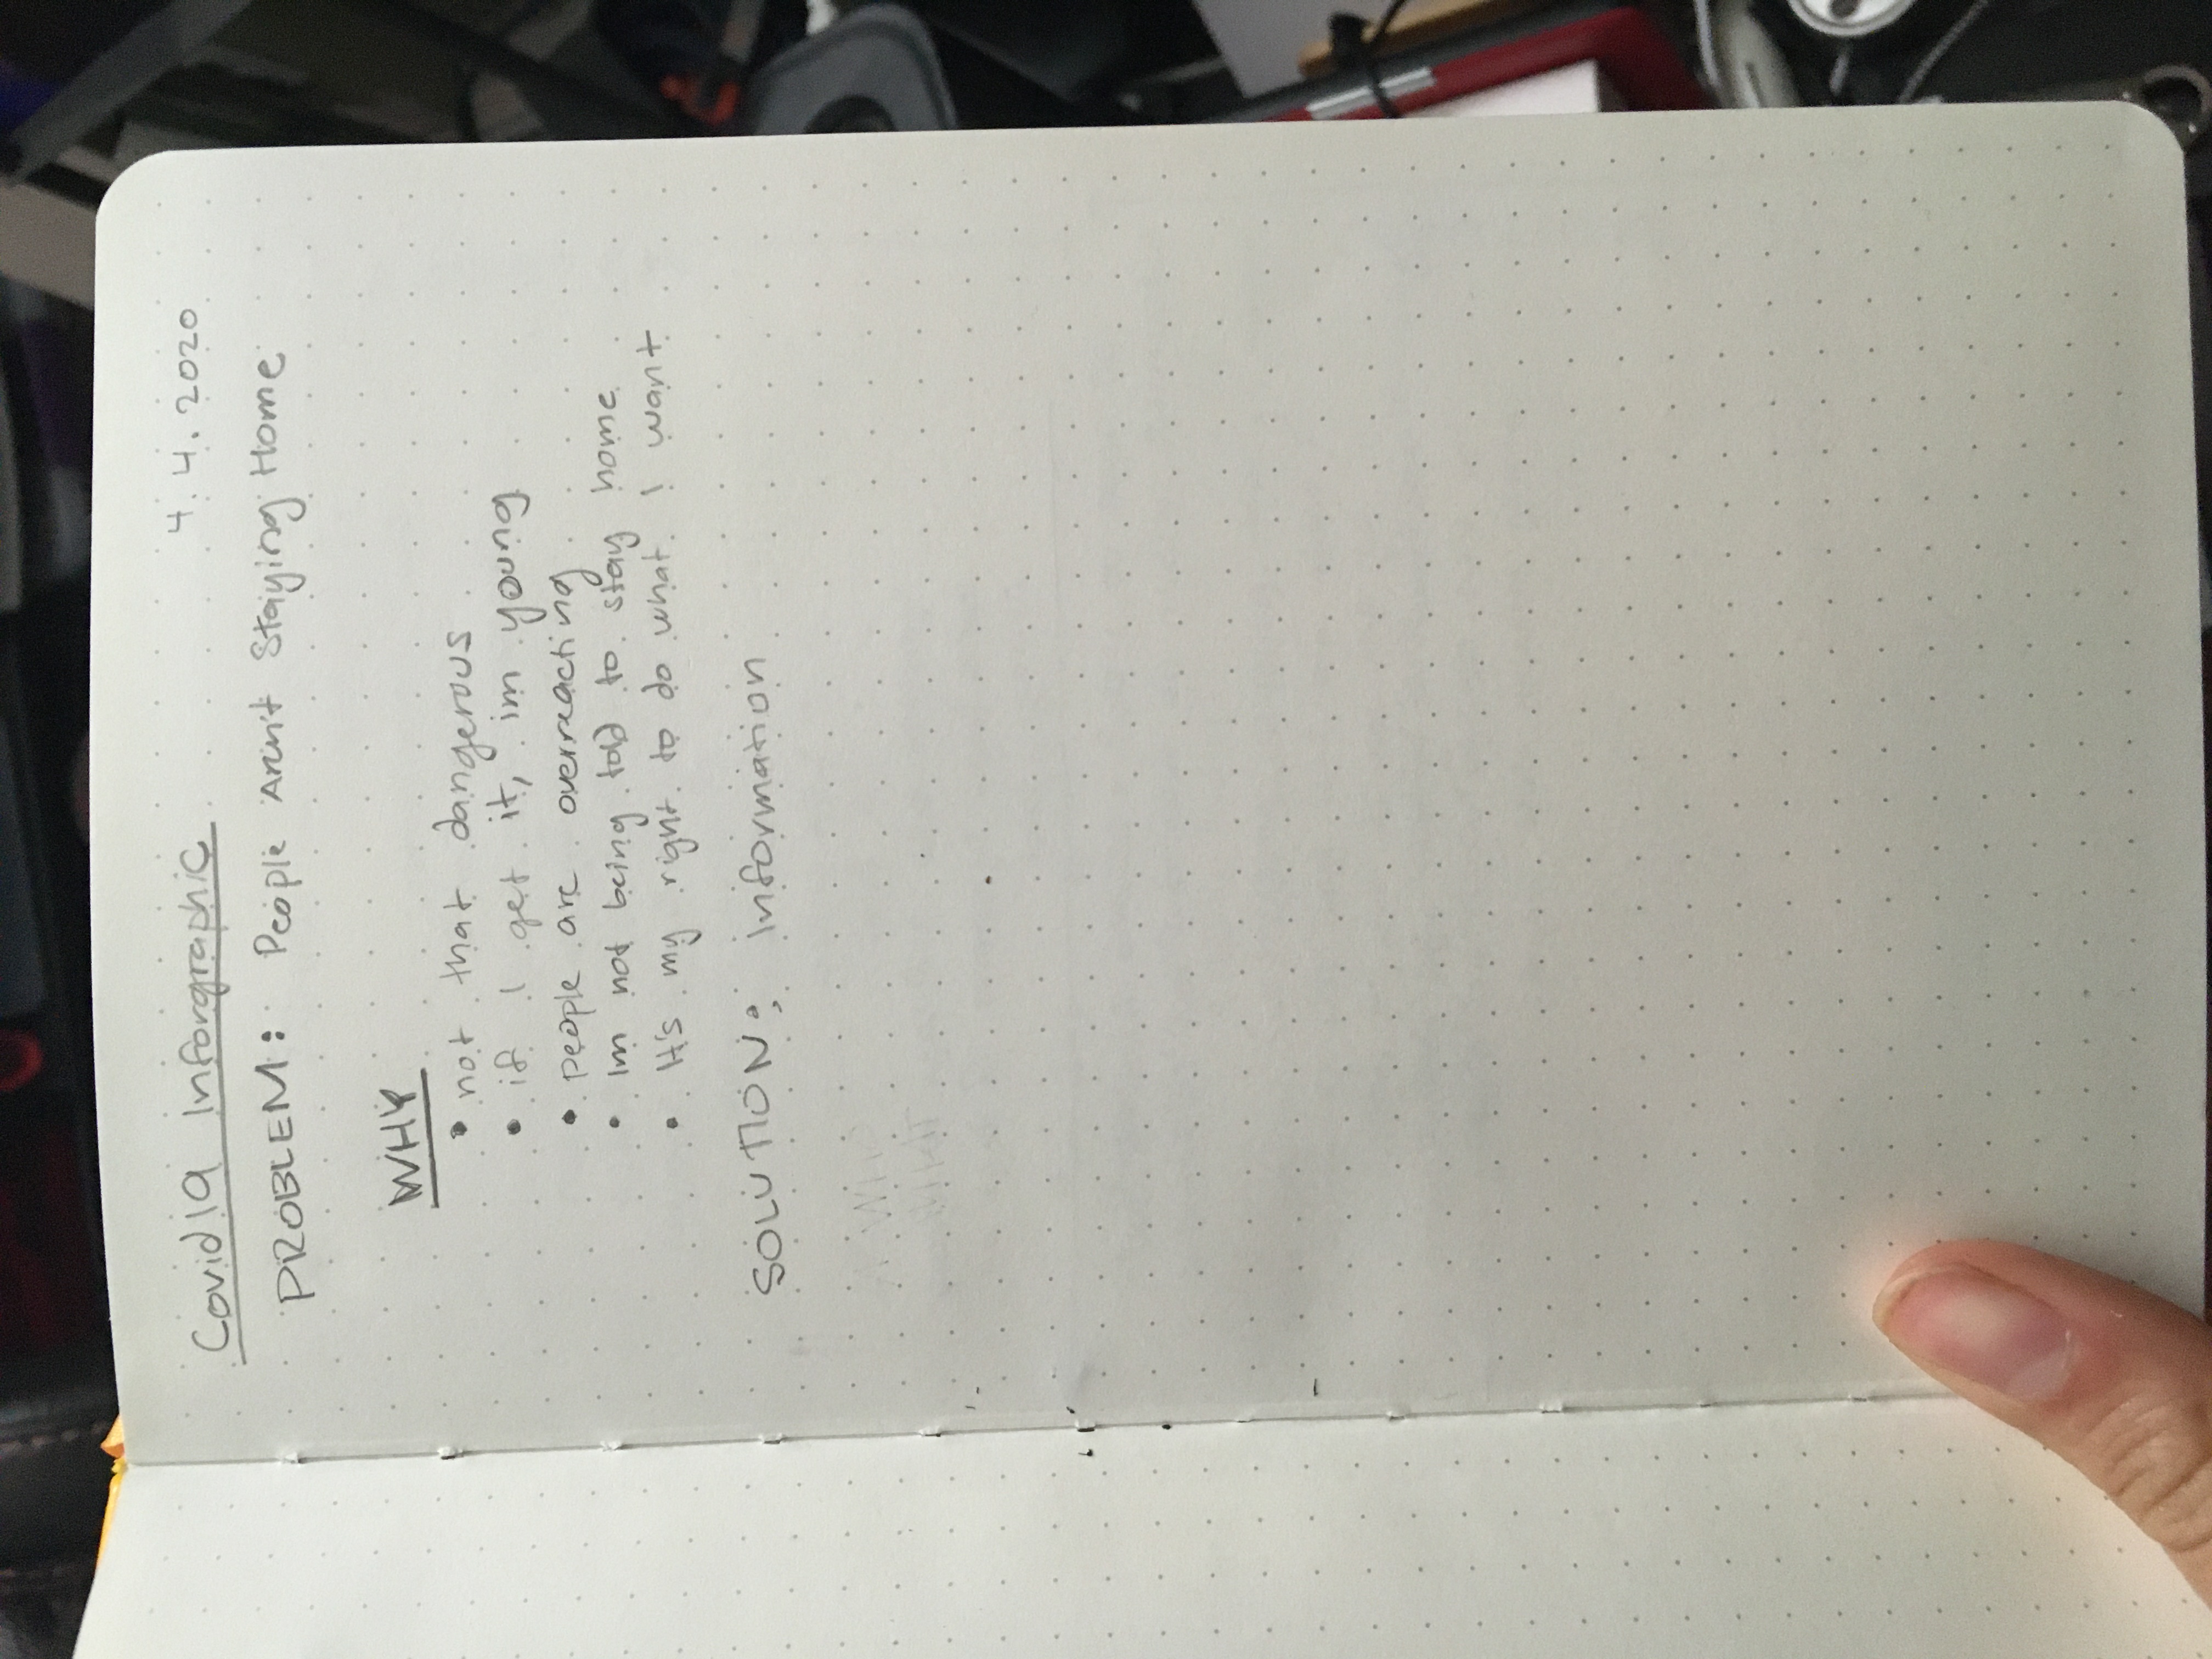 Covid19 Inforgraphic 4.4.2020
PROBLEM: People Aren't Staying Home
WHY
• not that dangerous
• if I get it, im young
• people are overreacting
• Im not being told to stay home
• It's my right to do what I want
SOLUTION: Information